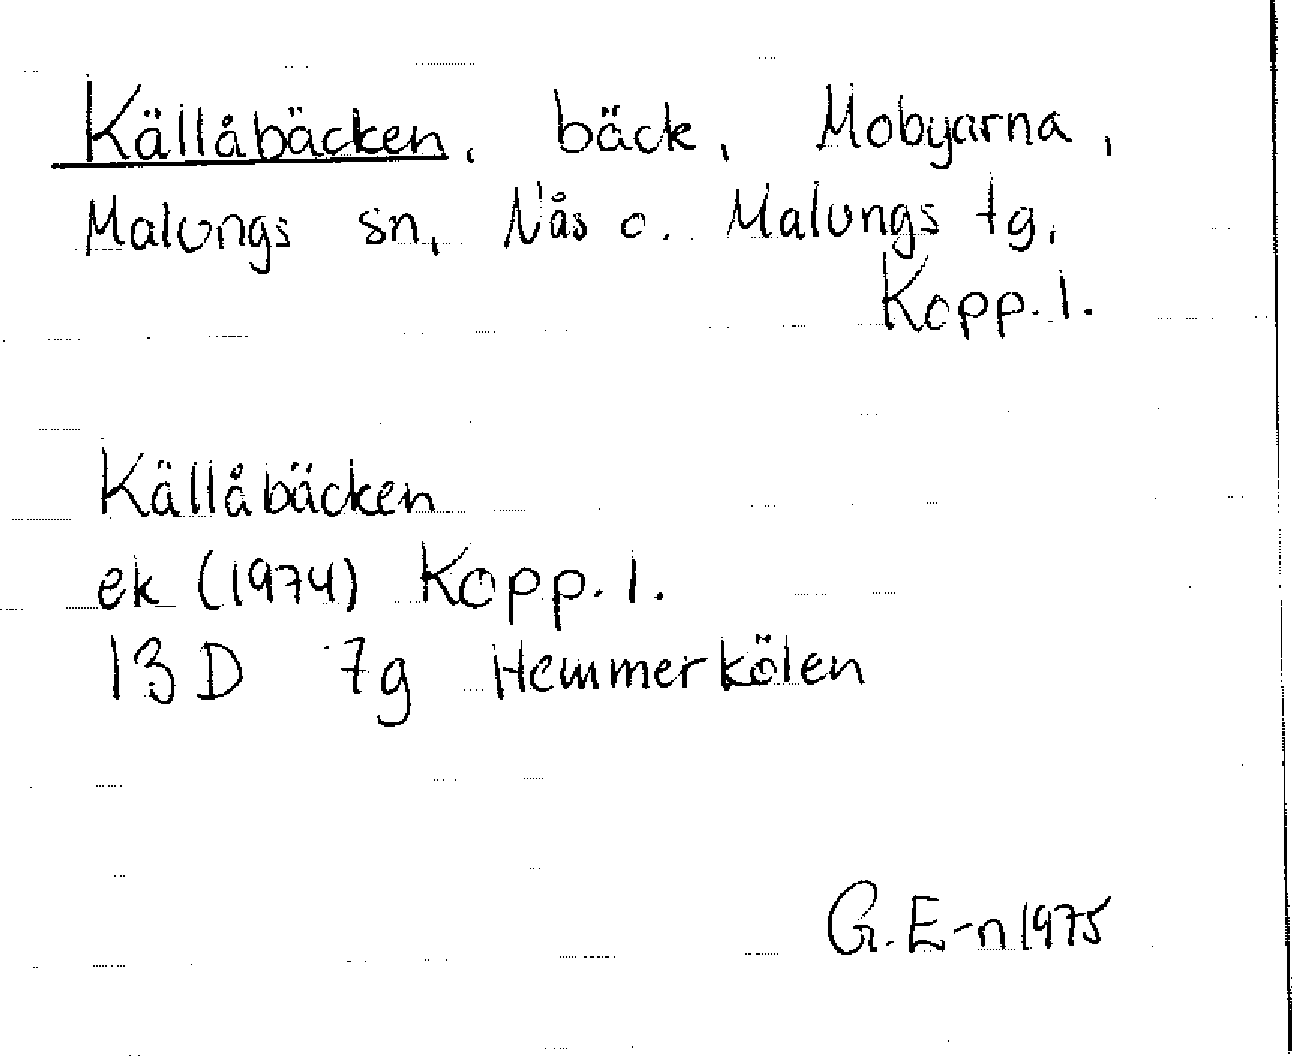 Källåbäcken, bäck, Mobyarna,
Malungs sn, Nås o. Malungs tg,
Kopp. l.
Källåbäcken
ek (1974) Kopp. l.
13 D 7g Hemmerkölen
G. E-n 1975